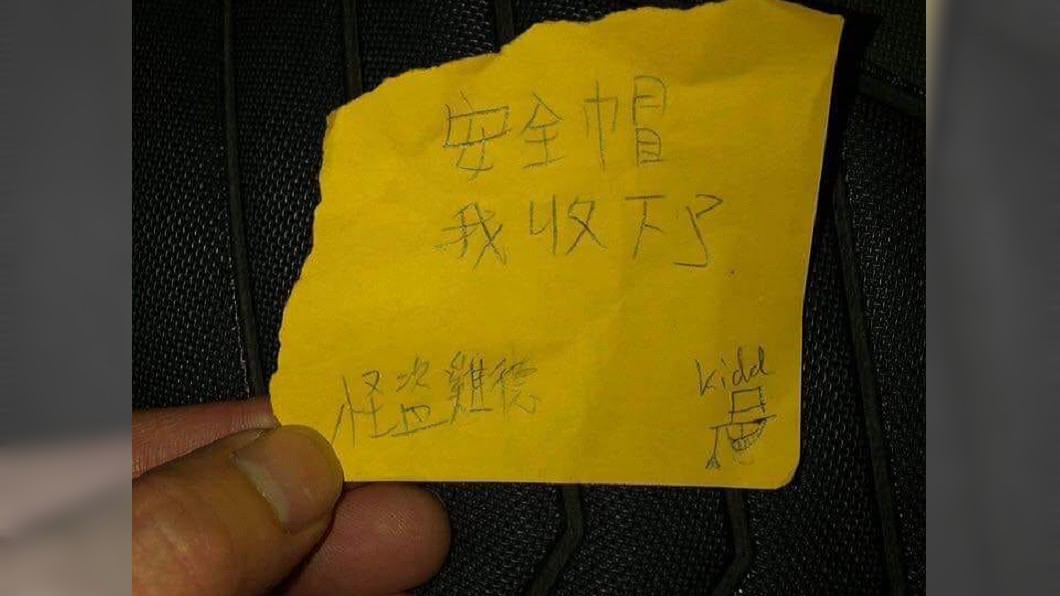 安全帽
我收下了.
怪盜雞德
kidd